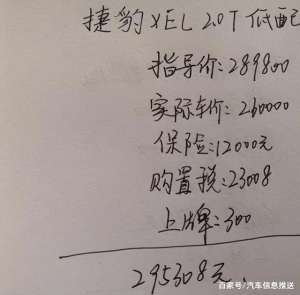 捷豹XEL 2.0T 低配
指导价:289800
实际车价:260000
保险:12000元
购置税:23008
上牌:300
295308元.
百家号/汽车信息推送